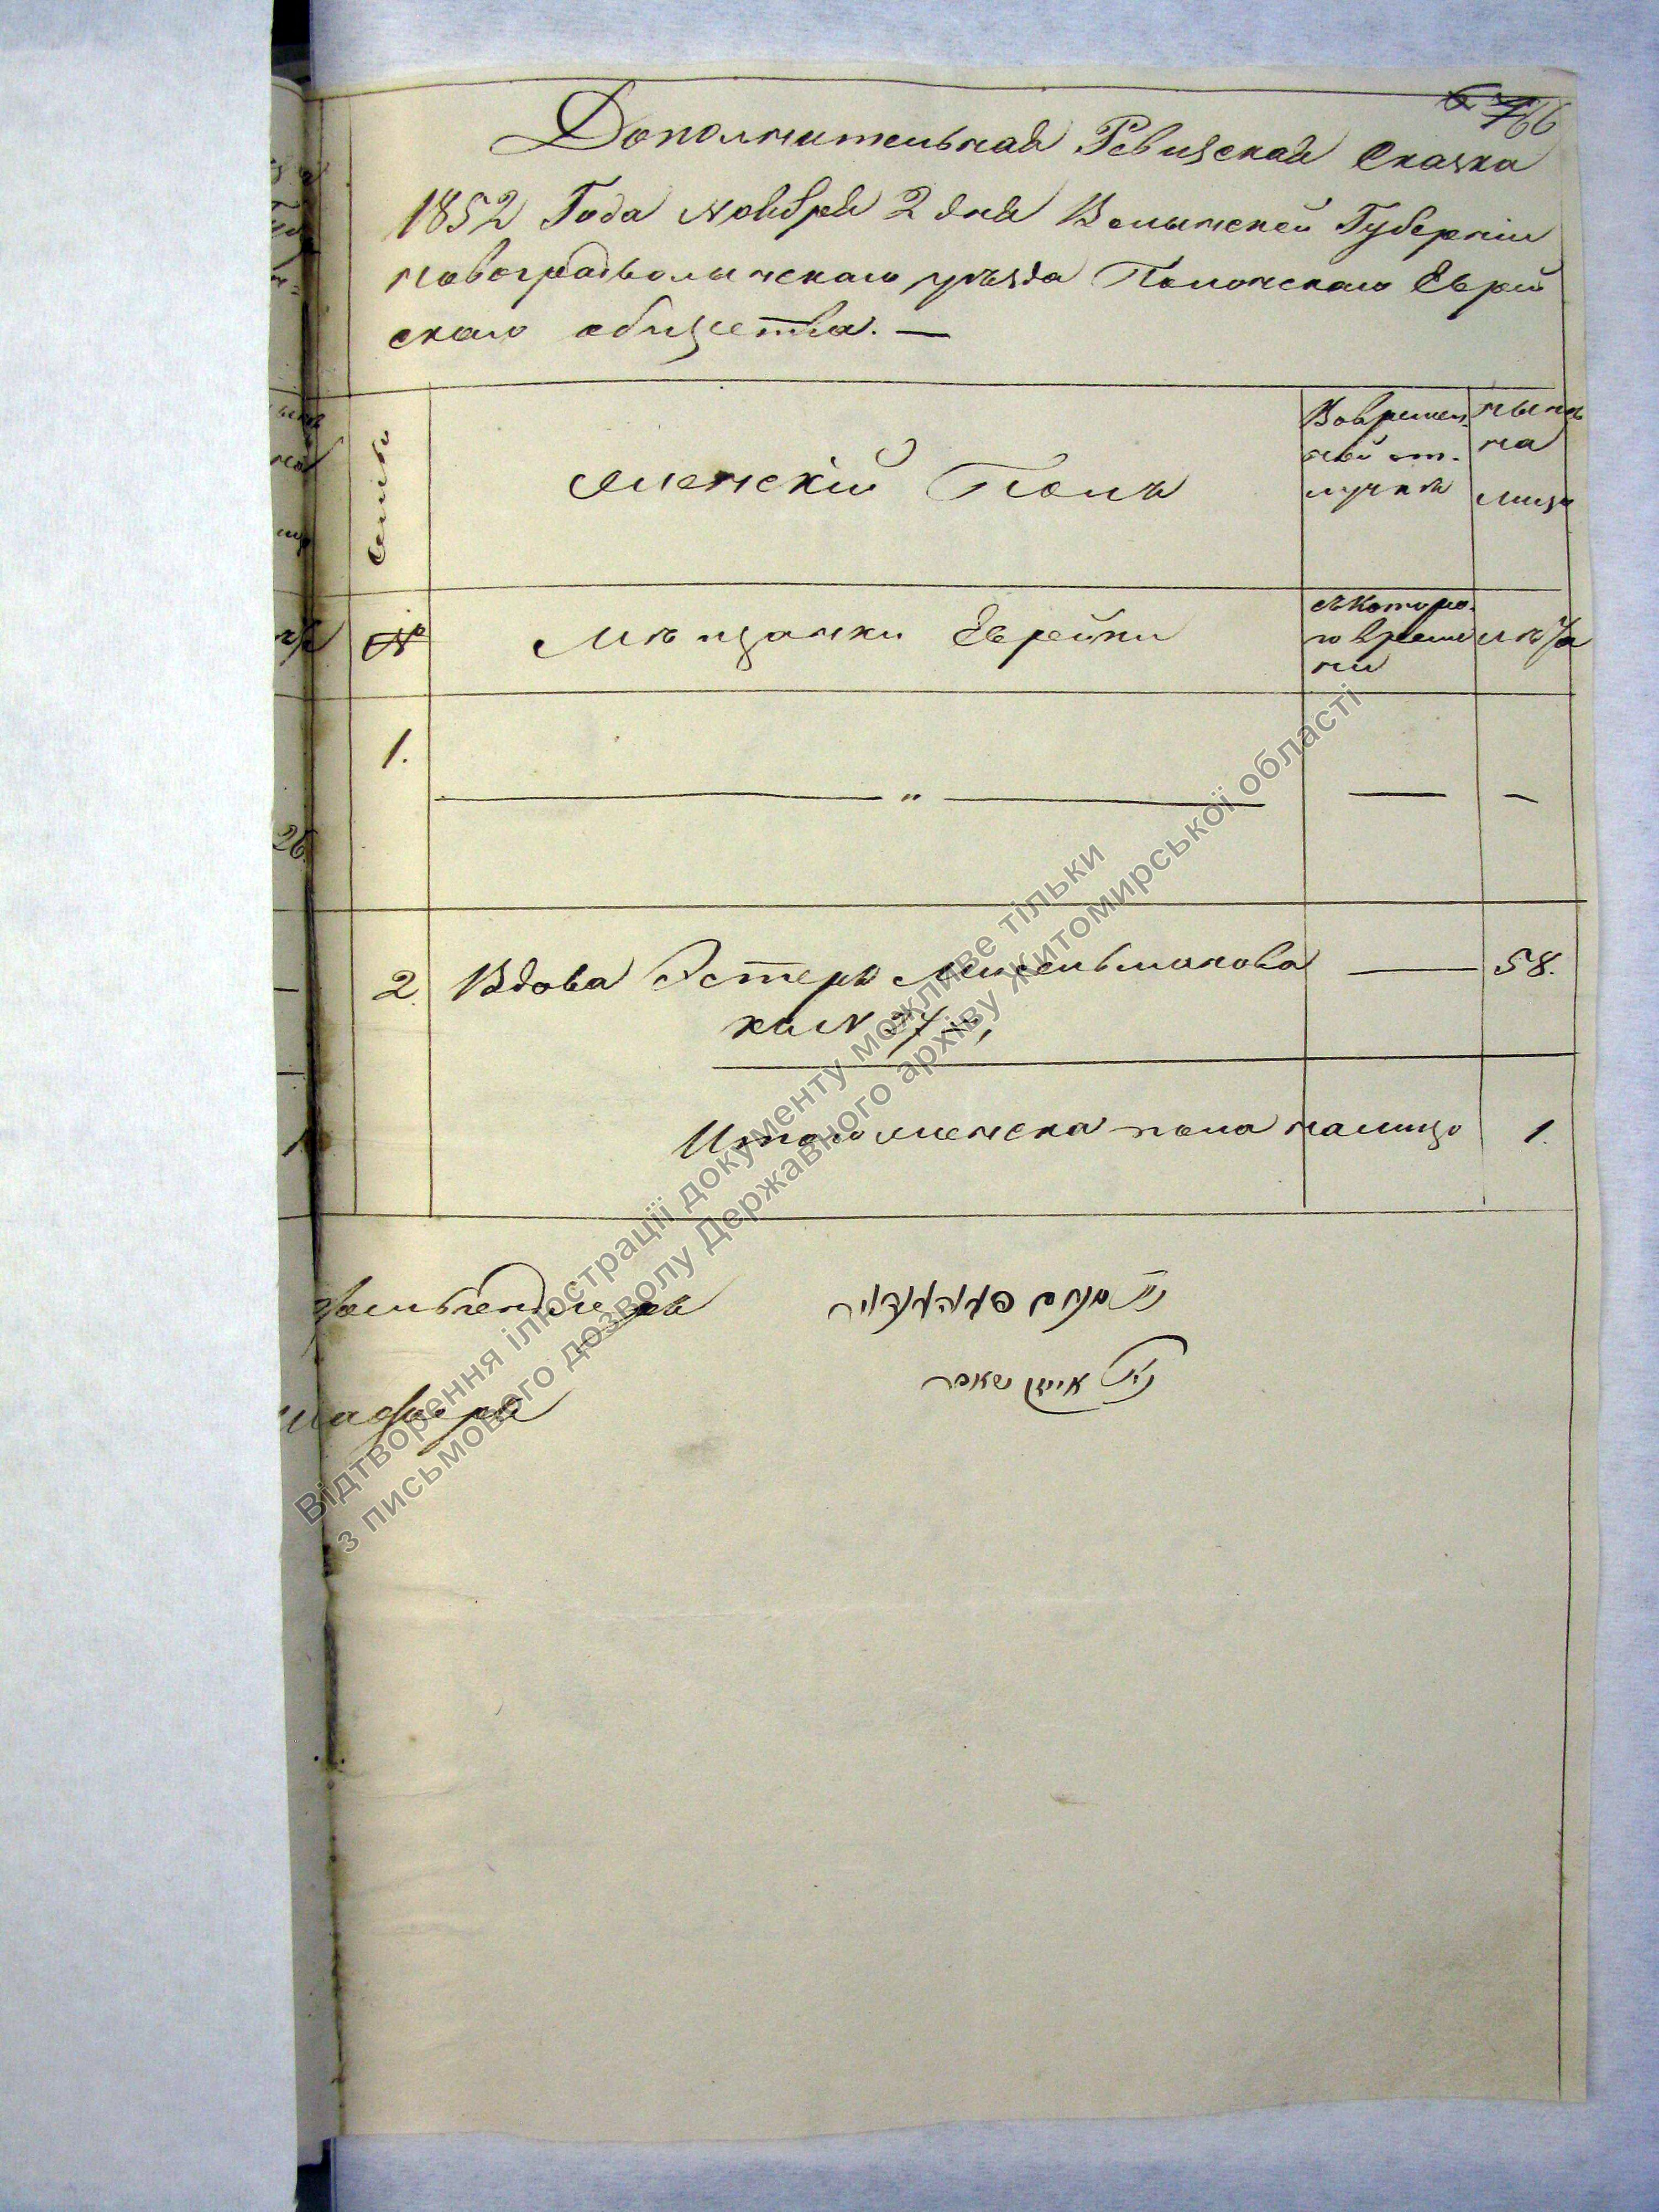 66
Дополнительная Ревизская Сказка
1852 Года Ноября 2 дня Волынской Губернiи
Новоградволынскаго уѣзда Полонскаго Еврей
скаго общества. —
Семьи
Женскiй Полъ
Вовремен-
ной от-
лучкѣ
нынѣ
на
лицо
№
Мѣщанки Еврейки
съ котора-
го време
ни
лѣта
1.
— „ — — —
2. Вдова Эстеръ — 58.
Итого женска пола налицо 1.
איציק
Відтворення ілюстрації документу можливе тільки
з письмового дозволу Державного архіву Житомирської області